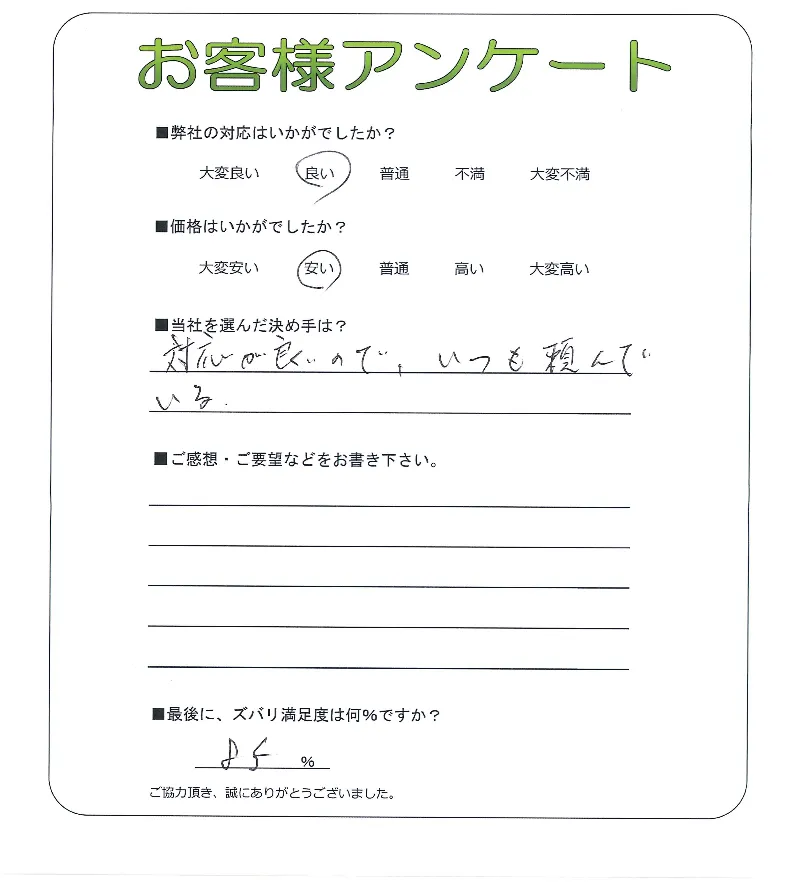 お客様アンケート
■弊社の対応はいかがでしたか？
大変良い 良い 普通 不満 大変不満
■価格はいかがでしたか？
大変安い 安い 普通 高い 大変高い
■当社を選んだ決め手は？
対応が良いので、いつも頼んで
いる.
■ご感想・ご要望などをお書き下さい。
■最後に、ズバリ満足度は何％ですか？
85 %
ご協力頂き、誠にありがとうございました。